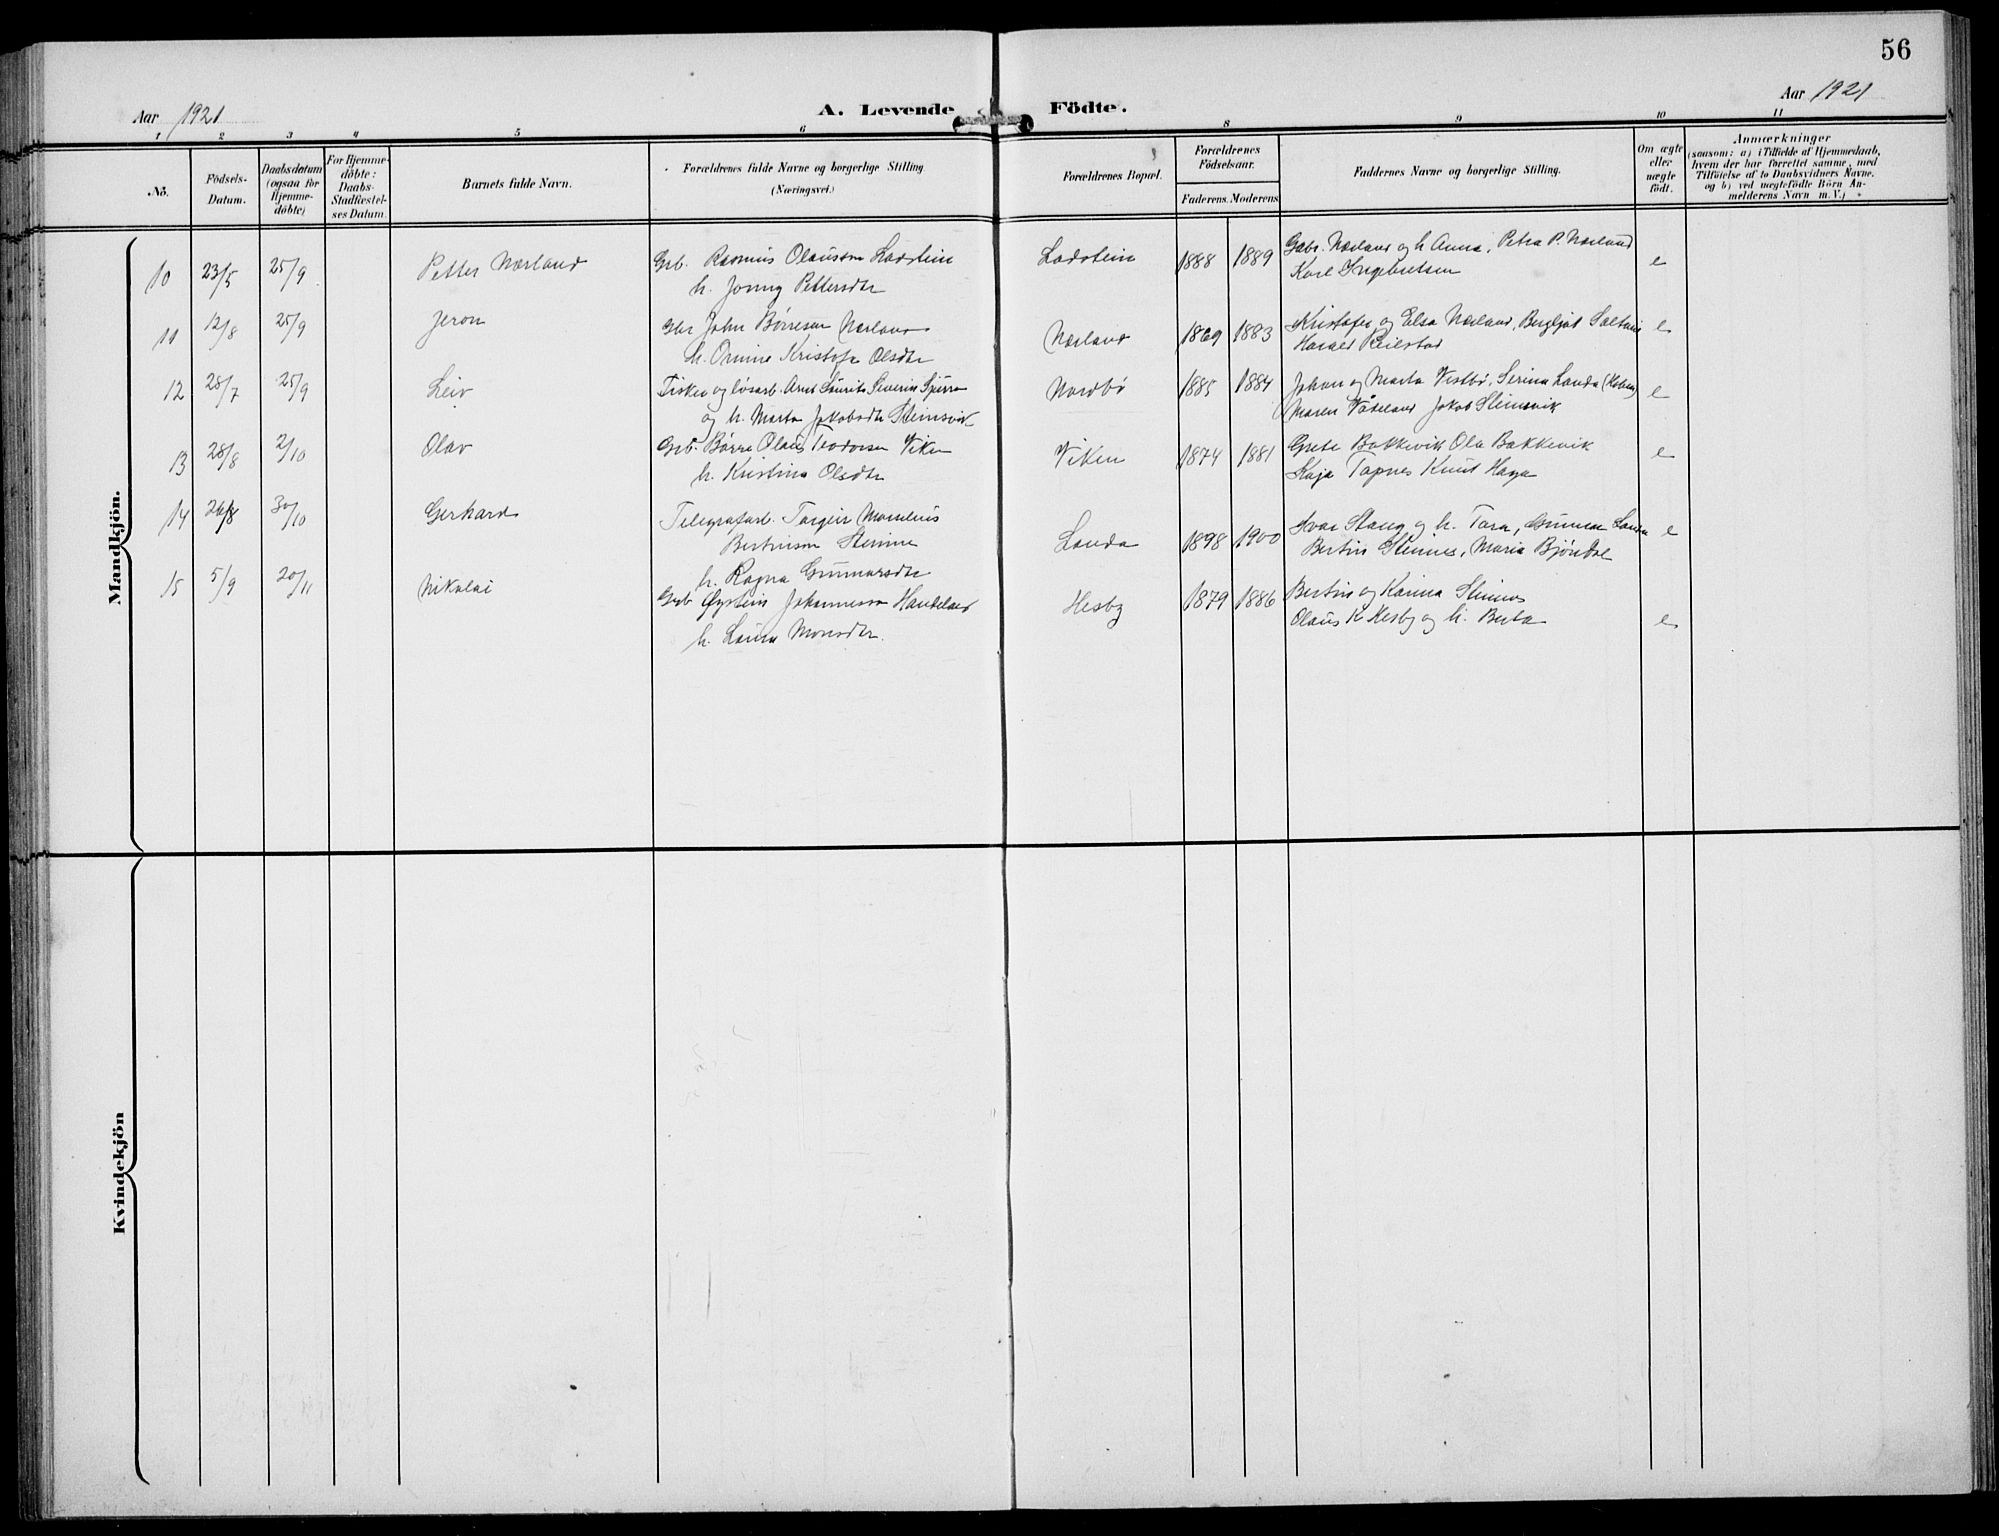 56
Aar 1921
A. Levende Födte.
Aar 1921
1 2 3 4 5 6 8 9 10 11
No.
Födsels-Datum.
Daabsdatum (ogsaa for Hjemme-döbte)
For Hjemme-döbte: Daabs-Stadfæstel-ses Datum.
Barnets fulde Navn.
Forældrenes fulde Navne og borgerlige Stilling
(Næringsvei.)
Forældrenes Bopæl.
Forældrenes Födselsaar.
Faderens. Moderens
Faddernes Navne og borgerlige Stilling.
Om ægte eller uægte födt.
Anmærkninger
(saasom: a) i Tilfælde af Hjemmedaab,
hvem der har forrettet samme, med
Tilföielse af to Daabsvidners Navne,
og b) ved uægtefödte Börn An-
melderens Navn m. V.)
Mandkjön.
10 23/5 25/9 Petter Nærland Grb. Rasmus Olausson Ladstein Ladstein 1888 1889 Gabr. Nærland og h. Anna, Petra P. Nærland e
h. Jonny Pettersdtr Karl Ingebretsen
11 12/8 25/9 Jeron Gbr John Børresen Nærland Nærland 1869 1883 Kristofer og Elsa Nærland, Bergljot e
h. Kristofa Olsdtr Harald Reilstad
12 28/7 25/9 Leiv Fisker og løsarb. Severin Nordbø 1885 1884 Johan og Marta Vestbø, Serina Landa e
og h. Marta Jakobsdtr Steinsvik Maren Jakob Steinsvik
13 28/8 2/10 Olav Grb. Børre Olaus Teodorsen Viken Viken 1874 1881 Grete Bakkevik Ola Bakkevik e
h. Kristina Olsdtr Kaja Tapnes Knut Haga
14 26/8 30/10 Gerhard Telegrafarb. Torgeir Landa 1898 1900 Ivar Stang og h. Tora, Gunnar Landa e
Bertinson Steinnes Bertin Steinnes, Maria Bjøndal
h. Ragna Gunnarsdtr
15 5/9 20/11 Nikolai Grb Øystein Johannesson Handeland Hesby 1879 1886 Bertin og Karina Steinnes
h. Laura Monsdtr. Olaus K Hesby og h. Berta e
Kvindekjön